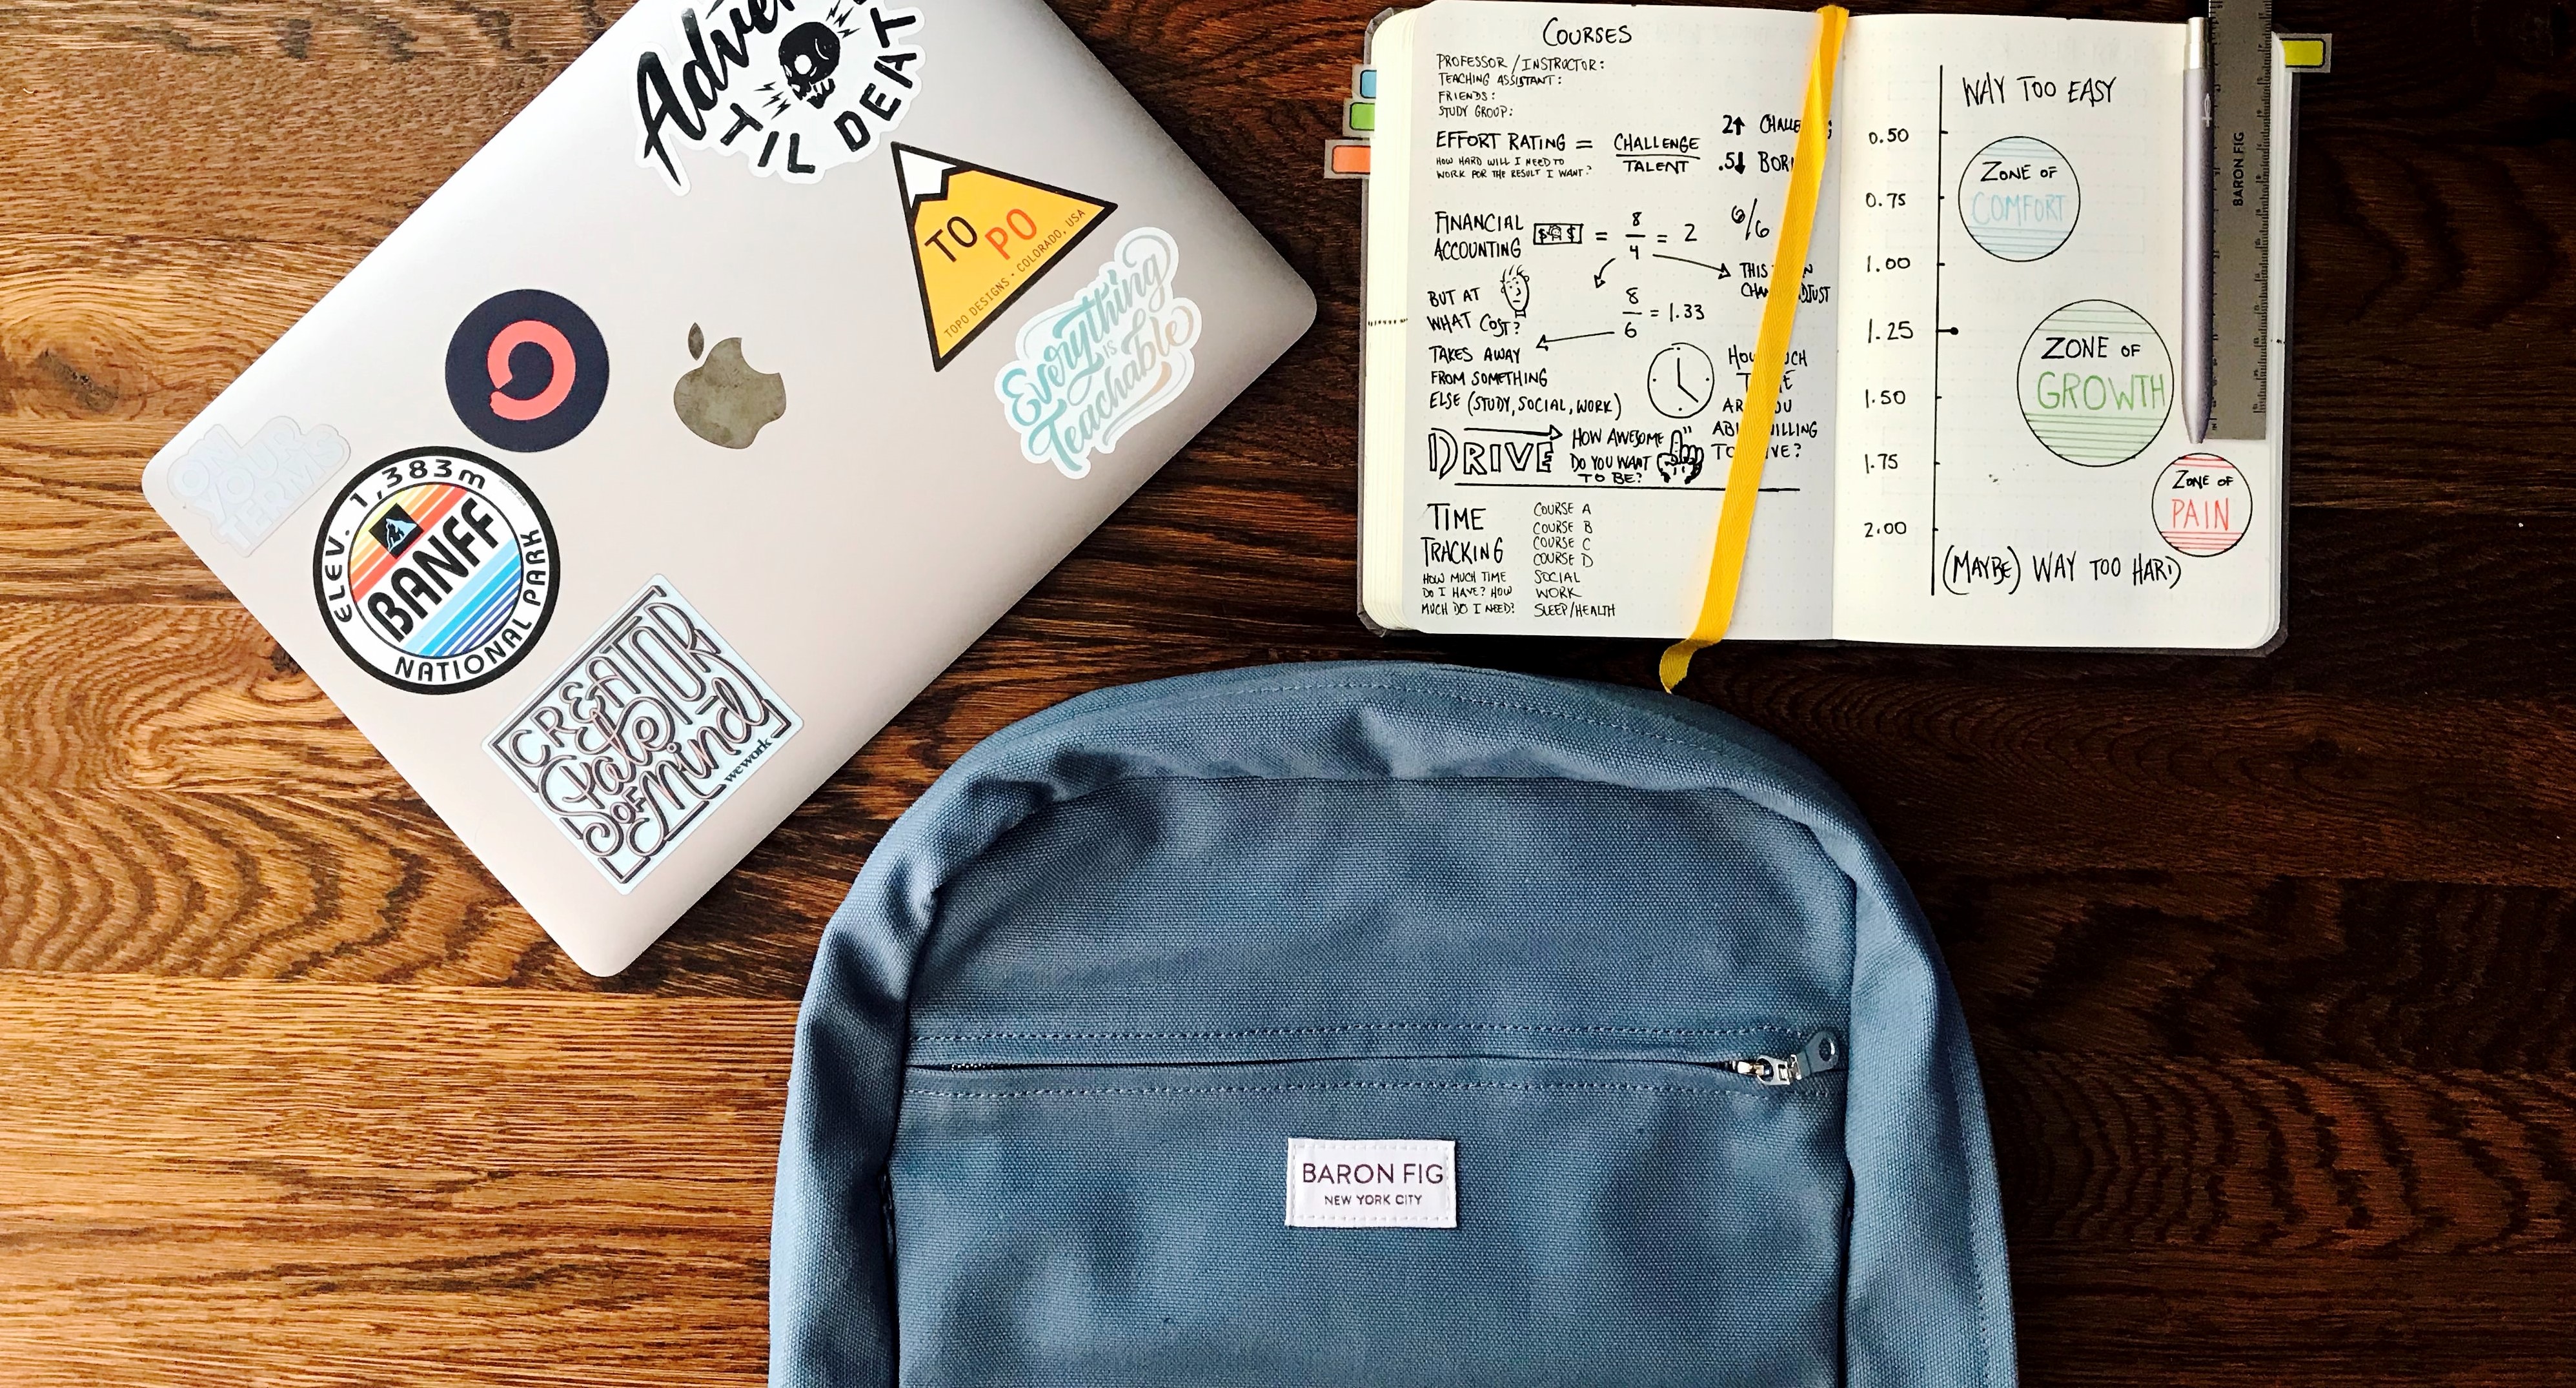 TIL DEAT
TO
PO
TOPO DESIGNS - COLORADO, USA
Everything
IS
Teachable
ON
YOUR
TERMS
ELEV. 1,383m
BANFF
NATIONAL PARK
CREATOR
State
OF
Mind
wework
COURSES
PROFESSOR / INSTRUCTOR:
TEACHING ASSISTANT:
FRIENDS:
STUDY GROUP:
EFFORT RATING = CHALLENGE
TALENT
HOW HARD WILL I NEED TO
WORK FOR THE RESULT I WANT?
2↑
.5↓
FINANCIAL
ACCOUNTING
$ $ = 8/4 = 2
6/6
THIS
BUT AT
WHAT COST?
8/6 = 1.33
TAKES AWAY
FROM SOMETHING
ELSE (STUDY, SOCIAL, WORK)
DRIVE
HOW AWESOME
DO YOU WANT
TO BE?
TIME
TRACKING
HOW MUCH TIME
DO I HAVE? HOW
MUCH DO I NEED?
COURSE A
COURSE B
COURSE C
COURSE D
SOCIAL
WORK
SLEEP/HEALTH
WAY TOO EASY
0.50
0.75
1.00
1.25
1.50
1.75
2.00
ZONE OF
COMFORT
ZONE OF
GROWTH
ZONE OF
PAIN
(MAYBE) WAY TOO HARD
BARON FIG
BARON FIG
NEW YORK CITY